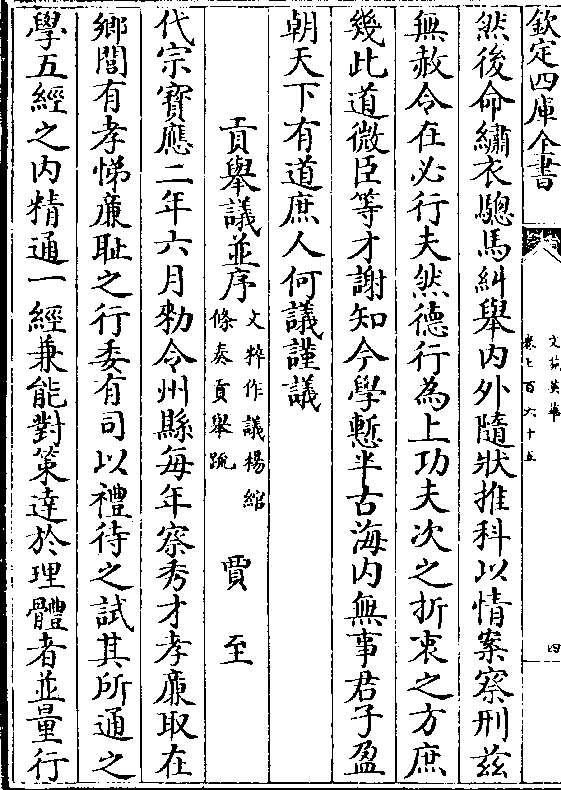 欽定四庫全書
文苑英華
卷七百六十五
四
然後命繡衣驄馬糾舉内外隨狀推科以情案察刑兹
無赦令在必行夫然德行為上功夫次之折衷之方庶
幾此道微臣等才謝知今學慙半古海内無事君子盈
朝天下有道庶人何議謹議
貢舉議並序
文粹作議楊綰
條奏貢舉䟽
賈至
代宗寶應二年六月勑令州縣每年察秀才孝廉取在
鄉閭有孝悌廉耻之行委有司以禮待之試其所通之
學五經之内精通一經兼能對策達於理體者並量行